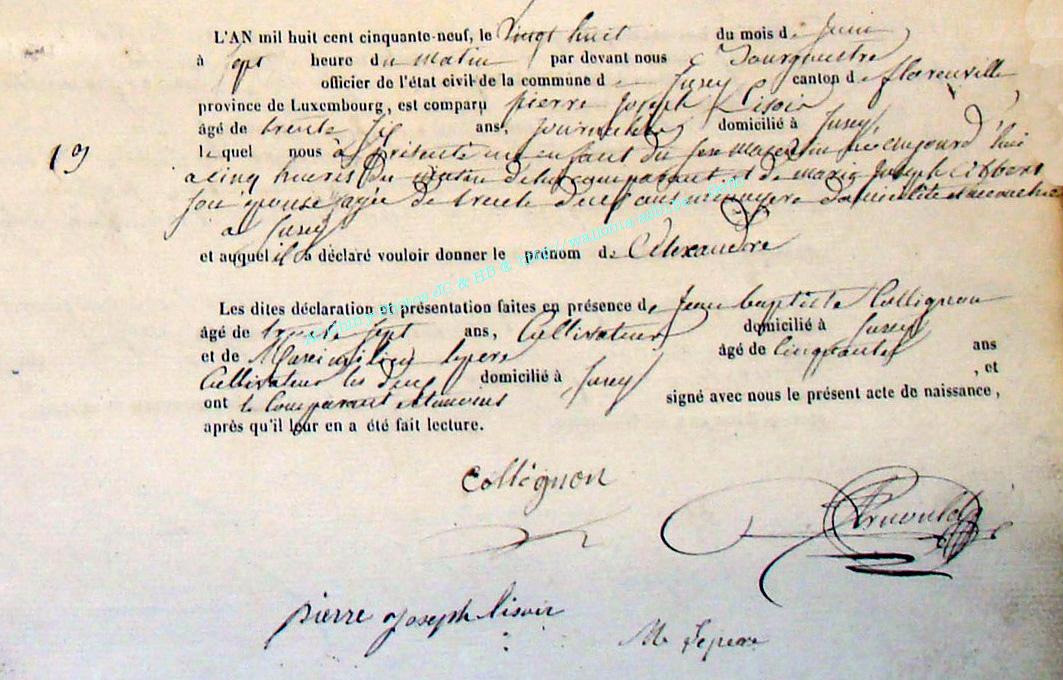 L'AN mil huit cent cinquante-neuf, le Vingt huit du mois de Juin
à Sept heure du matin par devant nous Bourgmestre
officier de l'état civil de la commune de Jusey canton de florenville
province de Luxembourg, est comparu pierre Joseph Lisoir
âgé de trente Six ans, journalier domicilié à Jusey
19 lequel nous à présenté un enfant du sexe masculin né aujourd'hui
a cinq heures du matin de lui comparant et de marie Joseph Gobbert
son épouse agée de trente deux ans menagère domiciliée et accouchée
a Jusey
et auquel il a déclaré vouloir donner le prénom de Alexandre
Les dites déclaration et présentation faites en présence de Jean baptiste Collignon
âgé de trente Sept ans, Cultivateur domicilié à Jusey
et de Maximilien lepere âgé de Cinquante ans
Cultivateur les deux domicilié à Jusey , et
ont le Comparant et temoins signé avec nous le présent acte de naissance,
après qu'il leur en a été fait lecture.
Collignon
Arnould
pierre Joseph lisoir
M Lepere